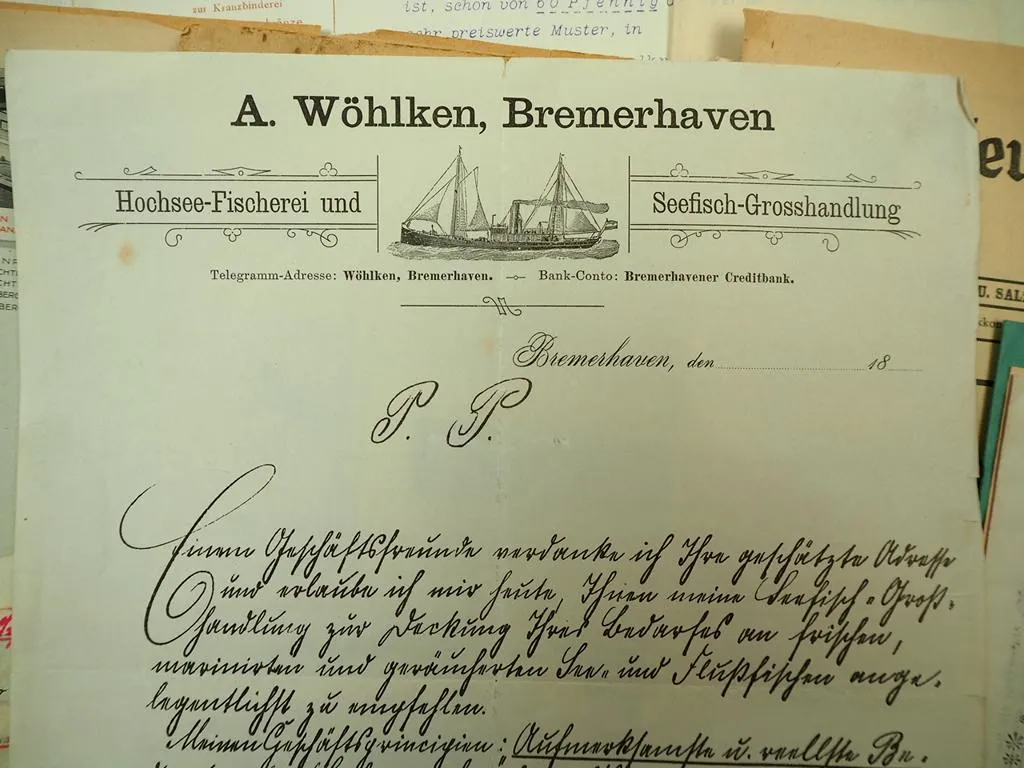 zur Kranzbinderei
ist, schon von 60 Pfennig
preiswerte Muster, in
A. Wöhlken, Bremerhaven
Hochsee-Fischerei und
Seefisch-Grosshandlung
Telegramm-Adresse: Wöhlken, Bremerhaven. Bank-Conto: Bremerhavener Creditbank.
Bremerhaven, den 18
P. P.
Einem Geschäftsfreunde verdanke ich Ihre geschätzte Adresse
und erlaube ich mir heute, Ihnen meine Seefisch-Groß-
handlung zur Deckung Ihres Bedarfes an frischen,
marinirten und geräucherten See- und Flußfischen ange-
legentlichst zu empfehlen.
Meinen Geschäftsprincipien: Aufmerksamste u. reellste Be-
U. SAL